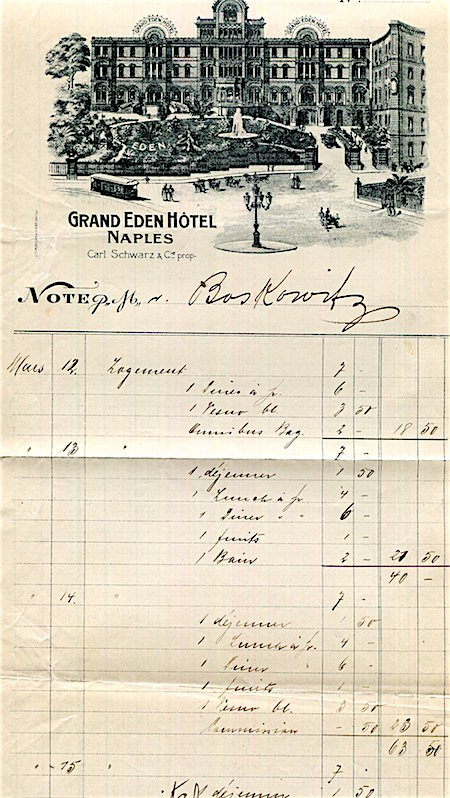 GRAND EDEN HOTEL
GRAND EDEN HOTEL
EDEN
GRAND EDEN HÔTEL
NAPLES
Carl Schwarz & Cie prop.
NOTE p. M. r. Boskowitz
Mars 12. Logement 7 -
1 Diner à pr. 6 -
1 Vesuv bl. 3 50
Omnibus Bag. 2 - 18 50
" 13 " 7 -
1 déjeuner 1 50
1 Lunch à pr 4 -
1 Diner " " 6 -
1 fruits 1 -
1 Bain 2 - 21 50
40 -
" 14. " 7 -
1 déjeuner 1 50
1 Lunch à pr. 4 -
1 Diner " 6 -
1 fruits 1 -
1 Vesuv bl. 3 50
Commission - 50 23 50
63 50
" 15 7 -
déjeuner 1 50